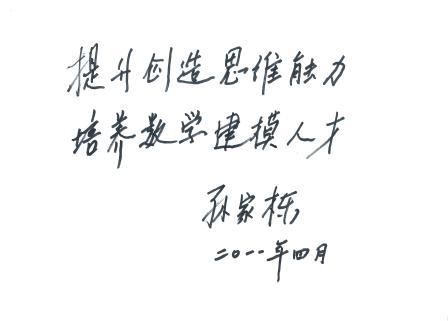 提升创造思维能力
培养数学建模人才
孙家栋
二〇一一年四月